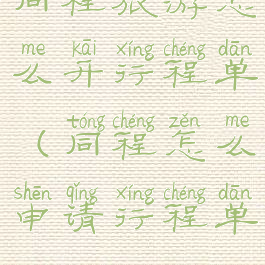 同程旅游怎
me kāi xíng chéng dān
么开行程单
tóng chéng zěn me
(同程怎么
shēn qǐng xíng chéng dān
申请行程单